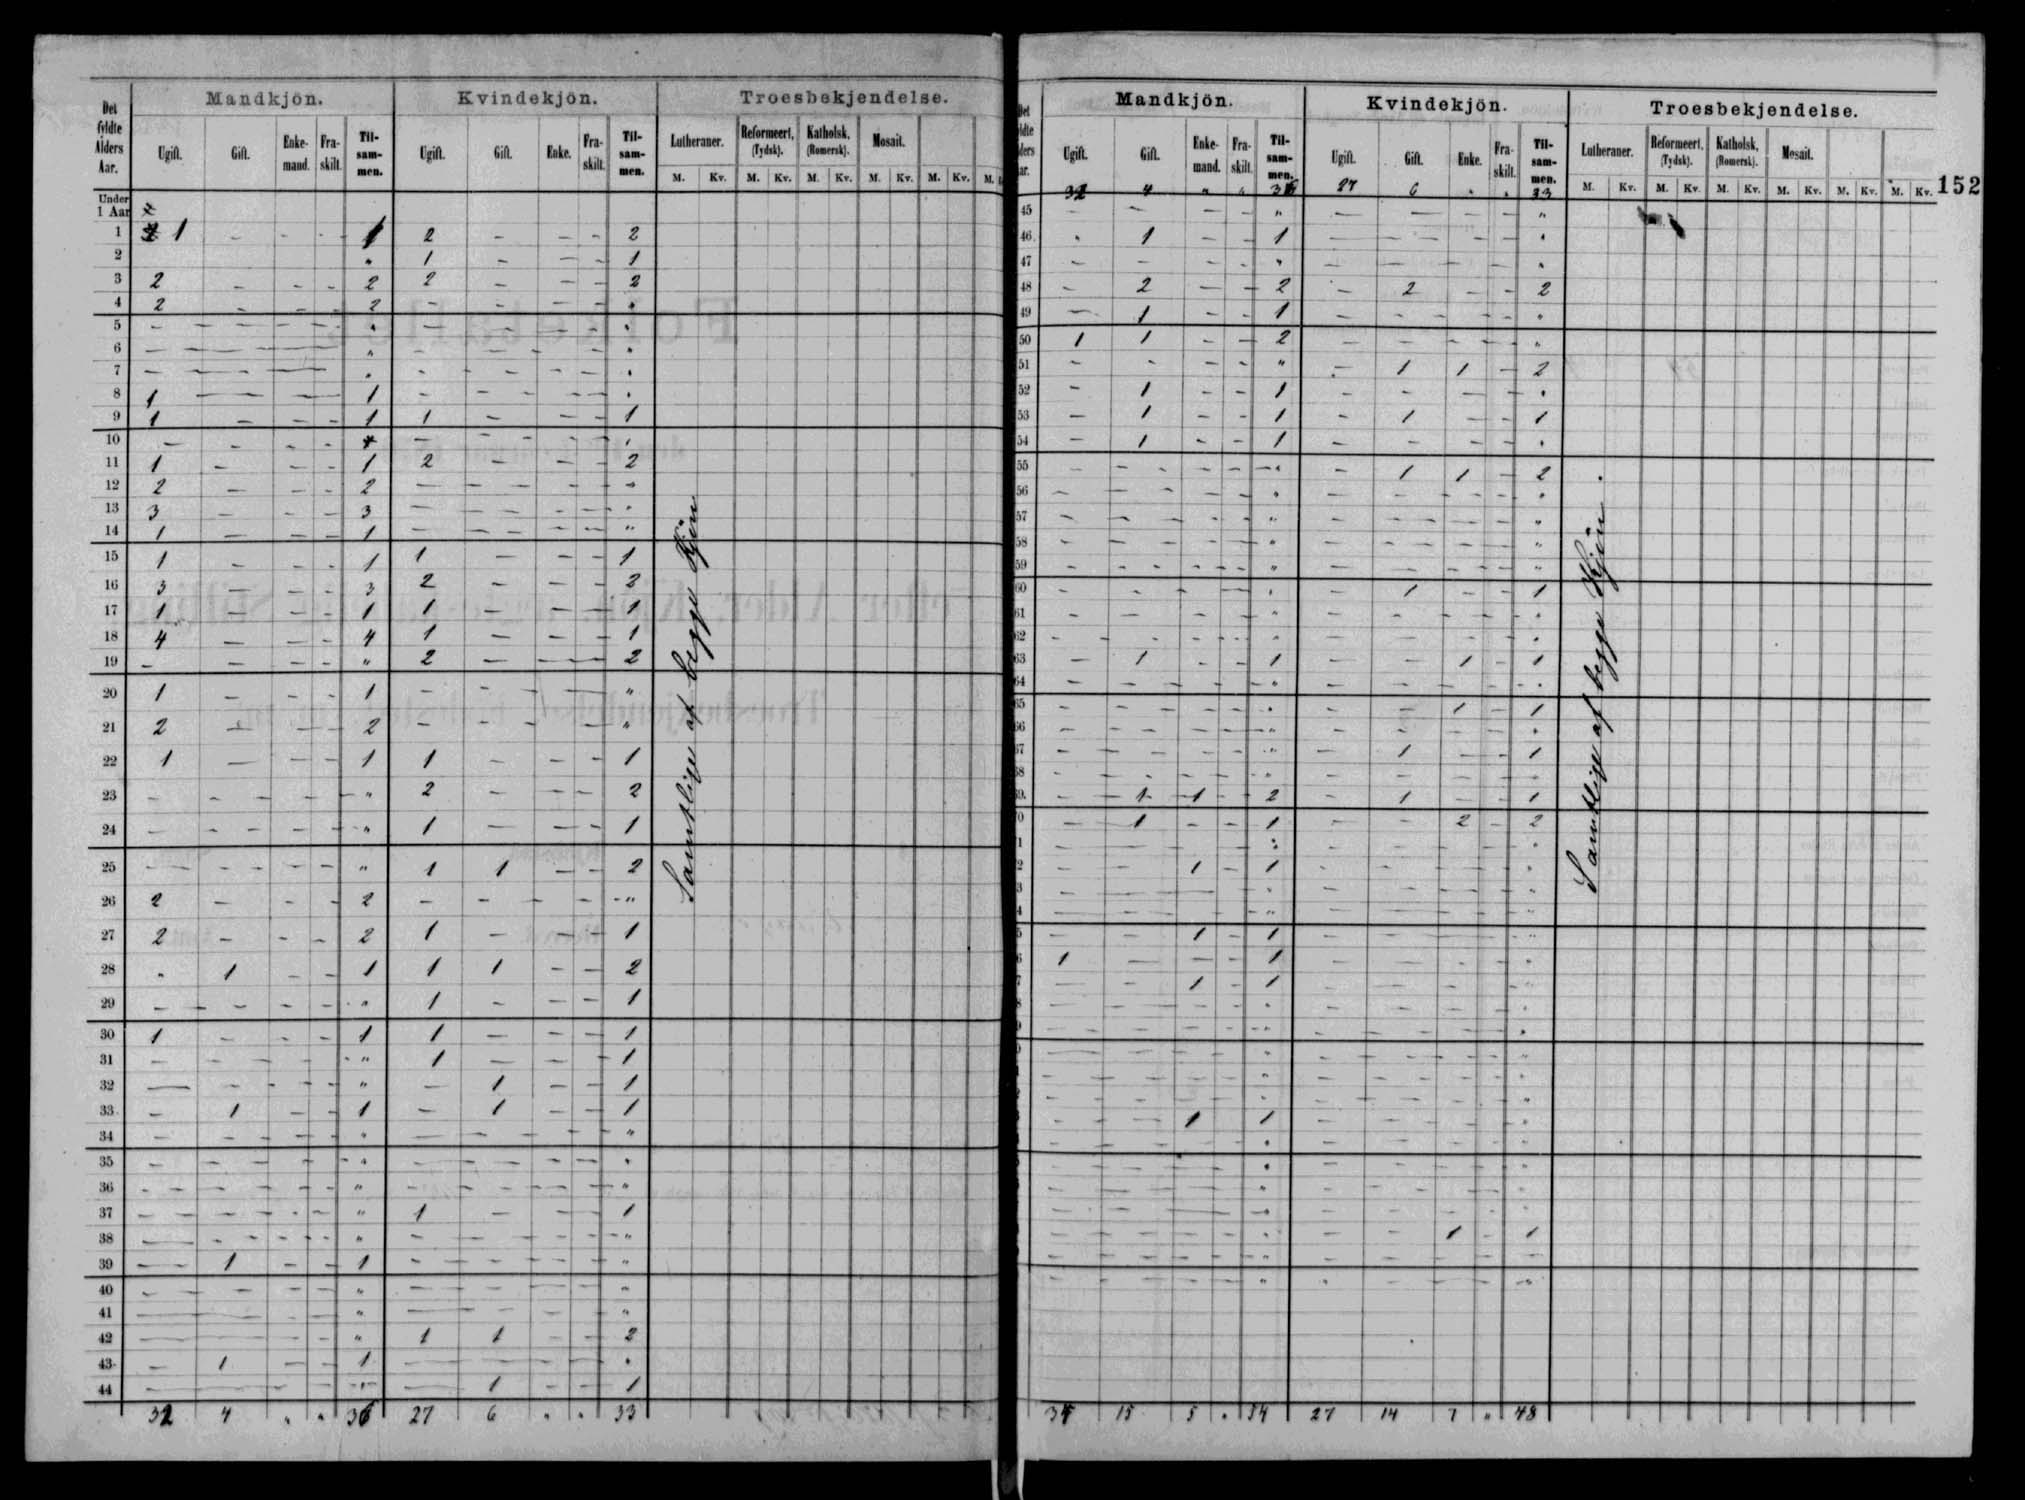 Det fyldte Alders Aar. Mandkjön. Kvindekjön. Troesbekjendelse.
Ugift. Gift. Enke-mand. Fra-skilt. Til-sam-men. Ugift. Gift. Enke. Fra-skilt. Til-sam-men. Lutheraner. Reformeert, (Tydsk). Katholsk, (Romersk). Mosait.
M. Kv. M. Kv. M. Kv. M. Kv. M. Kv. M.
Under 1 Aar
1 1 - - - 1 2 - - - 2
2 " 1 - - - 1
3 2 - - - 2 2 - - - 2
4 2 - - - 2 - - - - "
5 - - - - " - - - - "
6 - - - - " - - - - "
7 - - - - " - - - - "
8 1 - - - 1 - - - - "
9 1 - - - 1 1 - - - 1
10 - - - - - - - - "
11 1 - - - 1 2 - - - 2
12 2 - - - 2 - - - - "
13 3 - - - 3 - - - - "
14 1 - - - 1 - - - - "
15 1 - - - 1 1 - - - 1
16 3 - - - 3 2 - - - 2
17 1 - - - 1 1 - - - 1
18 4 - - - 4 1 - - - 1
19 - - - - " 2 - - - 2
20 1 - - - 1 - - - - "
21 2 - - - 2 - - - - "
22 1 - - - 1 1 - - - 1
23 - - - - " 2 - - - 2
24 - - - - " 1 - - - 1
25 - - - - " 1 1 - - 2
26 2 - - - 2 - - - - "
27 2 - - - 2 1 - - - 1
28 " 1 - - 1 1 1 - - 2
29 - - - - " 1 - - - 1
30 1 - - - 1 1 - - - 1
31 - - - - " 1 - - - 1
32 - - - - " - 1 - - 1
33 - 1 - - 1 - 1 - - 1
34 - - - - " - - - - "
35 - - - - " - - - - "
36 - - - - " - - - - "
37 - - - - " 1 - - - 1
38 - - - - " - - - - "
39 - 1 - - 1 - - - - "
40 - - - - " - - - - "
41 - - - - " - - - - "
42 - - - - " 1 1 - - 2
43 - 1 - - 1 - - - - "
44 - - - - " - 1 - - 1
32 4 " " 36 27 6 " " 33
Samtlige af begge Kjøn
152
Mandkjön. Kvindekjön. Troesbekjendelse.
Ugift. Gift. Enke-mand. Fra-skilt. Til-sam-men. Ugift. Gift. Enke. Fra-skilt. Til-sam-men. Lutheraner. Reformeert, (Tydsk). Katholsk, (Romersk). Mosait.
M. Kv. M. Kv. M. Kv. M. Kv. M. Kv. M. Kv.
32 4 " " 36 27 6 " " 33
45 - - - - " - - - - "
46 " 1 - - 1 - - - - "
47 - - - - " - - - - "
48 - 2 - - 2 - 2 - - 2
49 - 1 - - 1 - - - - "
50 1 1 - - 2 - - - - "
51 - - - - " - 1 1 - 2
52 - 1 - - 1 - - - - "
53 - 1 - - 1 - 1 - - 1
54 - 1 - - 1 - - - - "
55 - - - - " - 1 1 - 2
56 - - - - " - - - - "
57 - - - - " - - - - "
58 - - - - " - - - - "
59 - - - - " - - - - "
60 - - - - " - 1 - - 1
61 - - - - " - - - - "
62 - - - - " - - - - "
63 - 1 - - 1 - - 1 - 1
64 - - - - " - - - - "
65 - - - - " - - 1 - 1
66 - - - - " - - - - "
67 - - - - " - 1 - - 1
68 - - - - " - - - - "
69 - 1 1 - 2 - 1 - - 1
0 - 1 - - 1 - - 2 - 2
1 - - - - " - - - - "
2 - - 1 - 1 - - - - "
3 - - - - " - - - - "
4 - - - - " - - - - "
5 - - 1 - 1 - - - - "
6 1 - - - 1 - - - - "
7 - - 1 - 1 - - - - "
8 - - - - " - - - - "
9 - - - - " - - - - "
- - - - " - - - - "
- - - - " - - - - "
- - - - " - - - - "
- - 1 - 1 - - - - "
- - - - " - - - - "
- - - - " - - - - "
- - - - " - - - - "
- - - - " - - - - "
- - - - " - - 1 - 1
- - - - " - - - - "
- - - - " " - - - "
15 5 " 54 27 14 7 " 48
Samtlige af begge Kjøn.